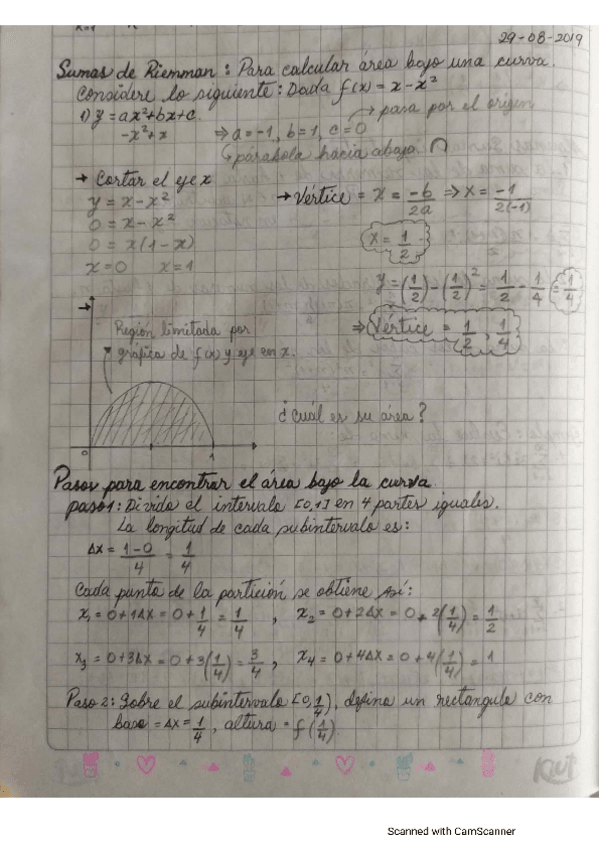 29-08-2019
Sumas de Riemman: Para calcular área bajo una curva.
Considere lo siguiente: Dada f(x) = x - x²
1) y = ax² + bx + c. → pasa por el origen
-x² + x ⇒ a = -1, b = 1, c = 0
↳ parábola hacia abajo ∩
→ Cortar el eje x
y = x - x²
0 = x - x²
0 = x(1 - x)
x = 0 x = 1
→ Vértice = x = -b/2a ⇒ x = -1/2(-1)
x = 1/2
y = (1/2) - (1/2)² = 1/2 - 1/4 = 1/4
⇒ Vértice = 1/2, 1/4
Región limitada por
gráfica de f(x) y eje en x.
¿Cuál es su área?
1
Pasos para encontrar el área bajo la curva.
paso 1: Divida el intervalo [0,1] en 4 partes iguales.
La longitud de cada subintervalo es:
Δx = 1-0/4 = 1/4
Cada punto de la partición se obtiene así:
x₁ = 0 + 1Δx = 0 + 1/4 = 1/4 , x₂ = 0 + 2Δx = 0 + 2(1/4) = 1/2
x₃ = 0 + 3Δx = 0 + 3(1/4) = 3/4 , x₄ = 0 + 4Δx = 0 + 4(1/4) = 1
Paso 2: Sobre el subintervalo [0, 1/4), defina un rectangulo con
base = Δx = 1/4, altura = f(1/4).
Kiut
Scanned with CamScanner